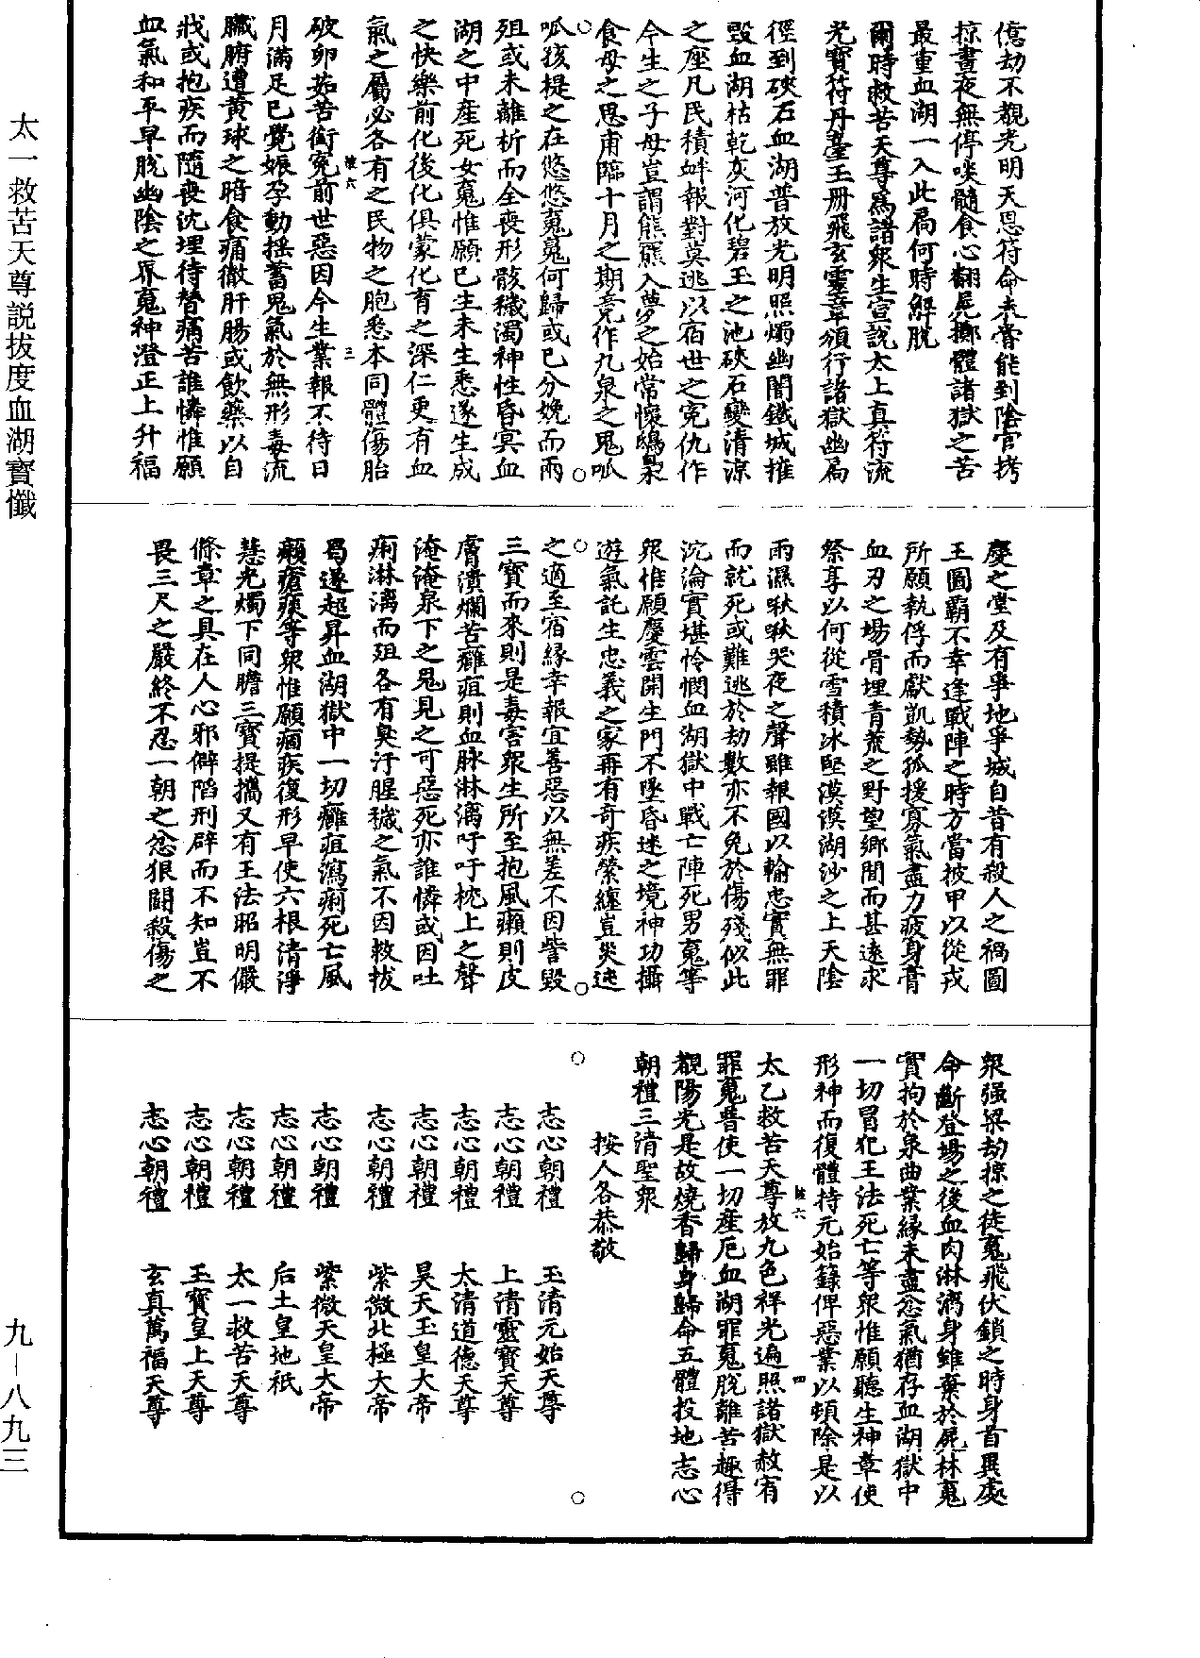 太一救苦天尊説拔度血湖寶懺
億劫不覩光明天恩符命未嘗能到陰官拷
掠晝夜無停啖髓食心翻屍擲體諸獄之苦
最重血湖一入此局何時解脫
爾時救苦天尊爲諸衆生宣說太上真符流
光寶符丹臺玉册飛玄靈章頒行諸獄幽扃
徑到硤石血湖普放光明照燭幽闇鐵城摧
毀血湖枯乾灰河化碧玉之池硤石變清凉
之座凡民積衅報對莫逃以宿世之寃仇作
今生之子母豈謂熊羆入夢之始常懷鴟梟
食母之恩甫臨十月之期竟作九泉之鬼呱
呱孩提之在悠悠䰟䰟何歸或已分娩而兩
殂或未離析而全喪形骸穢濁神性昏冥血
湖之中産死女䰟惟願已生未生悉遂生成
之快樂前化後化俱蒙化育之深仁更有血
氣之屬必各有之民物之胞悉本同體傷胎
破卵茹苦銜寃前世惡因今生業報不待日
月滿足已覺娠孕動摇蓄鬼氣於無形毒流
臟腑遭黄球之暗食痛徹肝腸或飲藥以自
戕或抱疾而隨喪沈埋待替痛苦誰憐惟願
血氣和平早脫幽陰之界䰟神澄正上升福
慶之堂及有爭地爭城自昔有殺人之禍圖
王圖霸不幸逢戰陣之時方當披甲以從戎
所願執俘而獻凱勢孤援寡氣盡力疲身膏
血刃之場骨埋青荒之野望鄉間而甚遠求
祭享以何從雪積冰堅漠漠湖沙之上天陰
雨濕啾啾哭夜之聲雖報國以輸忠實無罪
而就死或難逃於劫數亦不免於傷殘似此
沉淪實堪怜憫血湖獄中戰亡陣死男䰟等
衆惟願慶雲開生門不墜昏迷之境神功攝
遊氣託生忠義之家再有奇疾縈纏豈災迍
之適至宿縁幸報宜善惡以無差不因訾毀
三寶而來則是毒害衆生所至抱風癩則皮
膚潰爛苦癰疽則血脉淋漓吁吁枕上之聲
淹淹泉下之鬼見之可惡死亦誰憐或因吐
痢淋漓而殂各有臭汙腥穢之氣不因救拔
曷遂超昇血湖獄中一切癰疽瀉痢死亡風
癩瘡痍等衆惟願痼疾復形早使六根清淨
慧光燭下同瞻三寶提攜又有王法昭明儼
條章之具在人心邪僻陷刑辟而不知豈不
畏三尺之嚴終不忍一朝之忿狠鬪殺傷之
衆强梁劫掠之徒䰟飛伏鎖之時身首異處
命斷登場之後血肉淋漓身雖棄於屍林䰟
實拘於泉曲業縁未盡忿氣猶存血湖獄中
一切冒犯王法死亡等衆惟願聽生神章使
形神而復體持元始籙俾惡業以頓除是以
太乙救苦天尊放九色祥光遍照諸獄赦宥
罪䰟普使一切産厄血湖罪䰟脫離苦趣得
覩陽光是故燒香歸身歸命五體投地志心
朝禮三清聖衆
按人各恭敬
志心朝禮　玉清元始天尊
志心朝禮　上清靈寶天尊
志心朝禮　太清道德天尊
志心朝禮　昊天玉皇大帝
志心朝禮　紫微北極大帝
志心朝禮　紫微天皇大帝
志心朝禮　后土皇地祇
志心朝禮　太一救苦天尊
志心朝禮　玉寶皇上天尊
志心朝禮　玄真萬福天尊
九—八九三